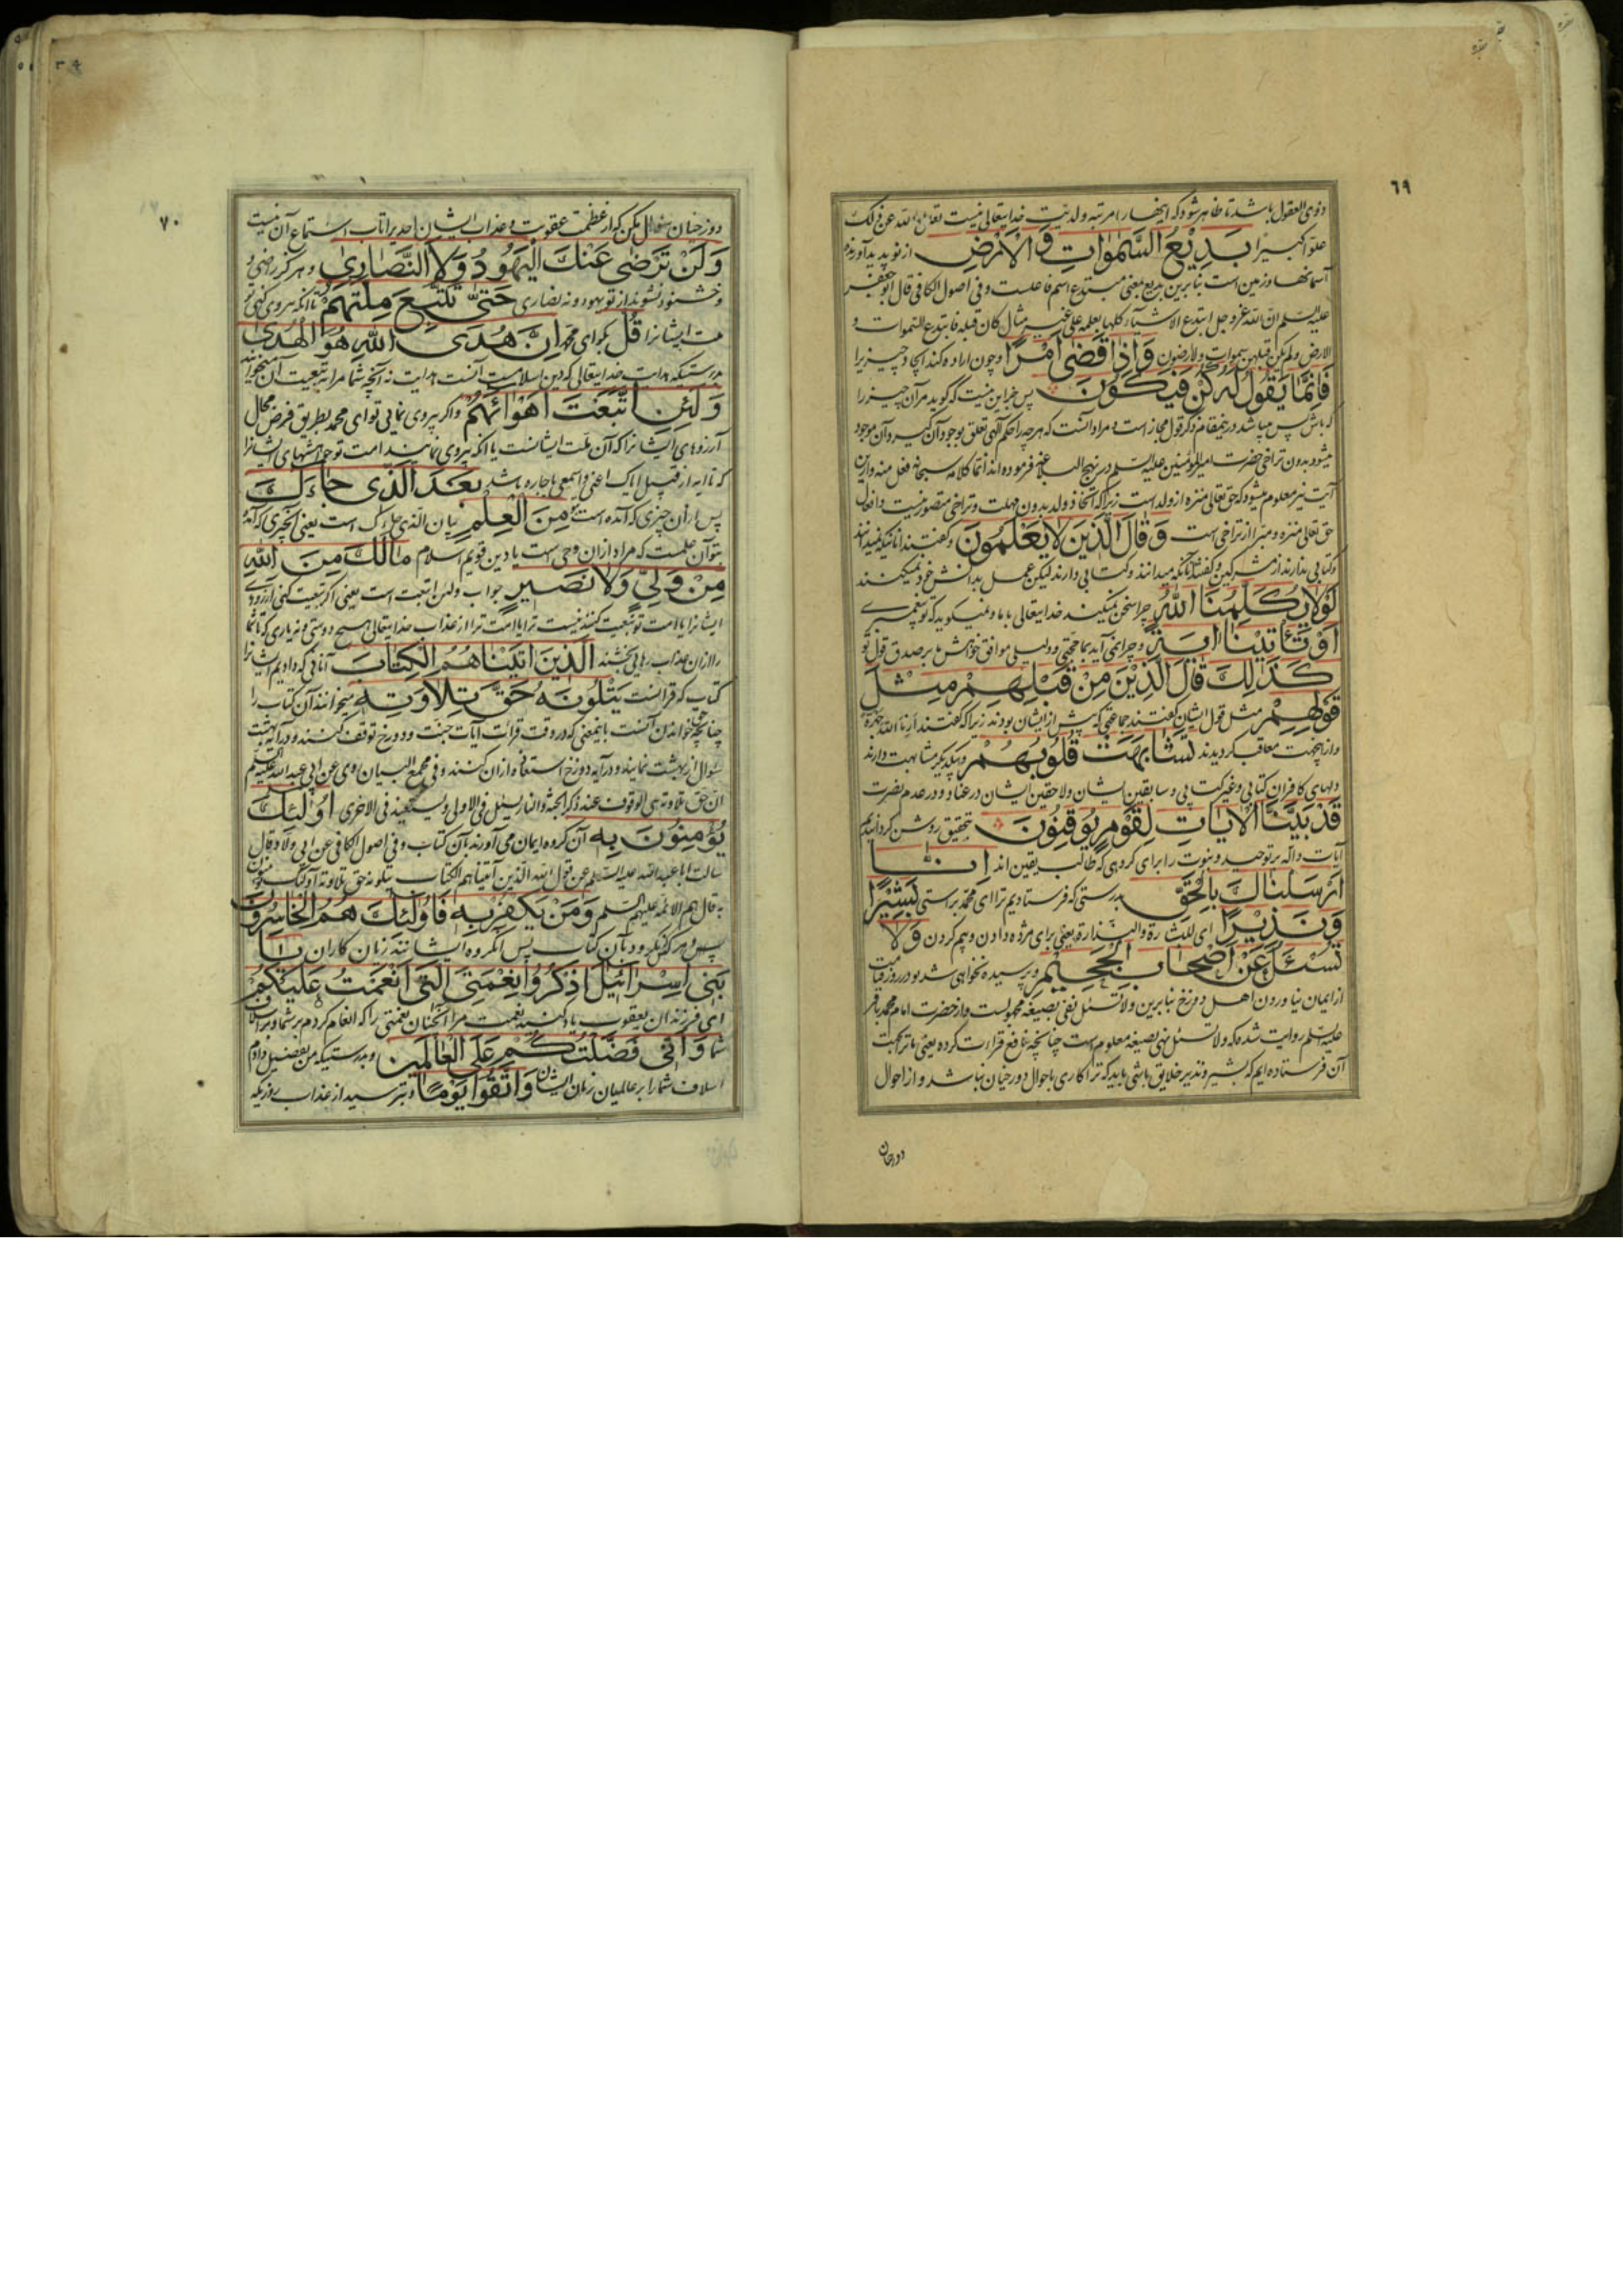 ٦٩
ذوی العقول باشد تا ظاهر شود که اینها را مرتبه ولدیت خدایتعالی نیست تعالی الله عن ذلک
علوا کبیرا بَدِيْعُ السَّمٰوَاتِ وَالْاَرْضِ از نو پدید آورنده
آسمانها و زمین است بنابرین بدیع بمعنی مبتدع اسم فاعلست و فی اصول الکافی قال ابو جعفر
علیه السلم ان الله عز و جل ابتدع الاشیآء کلها بعلمه علی غیر مثال کان قبله فابتدع السموات و
الارض ولم یکن قبلهن سموات ولا ارضون وَاِذَا قَضٰى اَمْرًا و چون اراده کند ایجاد چیزیرا
فَاِنَّمَا يَقُولُ لَهُ كُنْ فَيَكُونُ پس جز این نیست که گوید مر آن چیز را
که باش پس میباشد در ینمقام ذکر قول مجاز است و مراد آنست که هر چه را حکم آلهی تعلق بوجود آن گیرد آن موجود
میشود بدون تراخی حضرت امیرالمؤمنین علیه السلم در نهج البلاغه فرموده اند انما کلامه سبحانه فعل منه و ازین
آیت نیز معلوم میشود که حق تعالی منزه از ولد است زیرا که اتخاذ ولد بدون مهلت و تراخی متصور نیست و افعال
حق تعالی منزه و مبرا از تراخی است وَقَالَ الَّذِيْنَ لَا يَعْلَمُونَ و گفتند آنانیکه نمیدانند
و کتابی ندارند از مشرکین و گفتند آنانکه میدانند و کتابی دارند لیکن عمل بدانش خود نمیکنند
لَوْلَا يُكَلِّمُنَا اللّٰهُ چرا سخن نمیکند خدایتعالی با ما و نمیگوید که تو پیغمبری
اَوْ تَأْتِيْنَا اٰيَةٌ و چرا نمی آید بما حجتی و دلیلی موافق خواهش ما بر صدق قول تو
كَذٰلِكَ قَالَ الَّذِيْنَ مِنْ قَبْلِهِمْ مِثْلَ
قَوْلِهِمْ مثل قول ایشان گفتند جماعتی که پیش از ایشان بودند زیرا که گفتند ارنا الله جهرة
و ازینجهت معاقب گردیدند تَشَابَهَتْ قُلُوبُهُمْ بیکدیگر مشابهت دارند
دلهای کافران کتابی و غیر کتابی و سابقین ایشان و لاحقین ایشان در عناد و در عدم بصیرت
قَدْ بَيَّنَّا الْاٰيَاتِ لِقَوْمٍ يُوقِنُونَ بتحقیق روشن گردانیدیم
آیات داله بر توحید و نبوت را برای گروهی که طالب یقین اند اِنَّا
اَرْسَلْنَاكَ بِالْحَقِّ بدرستی که فرستادیم ترا ای محمد براستی بَشِيْرًا
وَنَذِيْرًا ای للبشارة والنذارة یعنی برای مژده دادن و بیم کردن وَلَا
تُسْئَلُ عَنْ اَصْحَابِ الْجَحِيْمِ و پرسیده نخواهی شد در روز قیامت
از ایمان نیاوردن اهل دوزخ بنابرین ولا تسئل نفی بصیغه مجهولست و از حضرت امام محمد باقر
علیه السلم روایت شده که ولا تسئل نهی بصیغه معلوم است چنانچه نافع قرائت کرده یعنی ما ترا بجهت
آن فرستاده ایم که بشیر و نذیر خلایق باشی باید که ترا کاری باحوال دوزخیان نباشد و از احوال
دوزخیان
٧٠
دوزخیان سؤال مکن که از عظمت عقوبت و عذاب ایشان احدیرا تاب استماع آن نیست
وَلَنْ تَرْضٰى عَنْكَ الْيَهُودُ وَلَا النَّصَارٰى و هرگز راضی و
خشنود نشوند از تو یهود و نه نصاری حَتّٰى تَتَّبِعَ مِلَّتَهُمْ تا آنکه پیروی کنی تو
ملت ایشانرا قُلْ بگو ای محمد اِنَّ هُدَى اللّٰهِ هُوَ الْهُدٰى
بدرستیکه هدایت خدایتعالی که دین اسلامست آنست هدایت نه آنچه شما مرا به تبعیت آن میخوانید
وَلَئِنِ اتَّبَعْتَ اَهْوَائَهُمْ و اگر پیروی نمائی تو ای محمد بطریق فرض محال
آرزوهای ایشانرا که آن ملت ایشانست یا آنکه پیروی نمایند امت تو خواهشهای ایشانرا
که تا ایه از قبیل ایاک اعنی و اسمعی یا جاره باشد بَعْدَ الَّذِى جَاءَكَ
پس از آن چیزی که آمده است ترا مِنَ الْعِلْمِ بیان الذی جاءک است یعنی آنچیزی که آمده
بتو آن علمست که مراد از آن وحی است یا دین قویم اسلام مَالَكَ مِنَ اللّٰهِ
مِنْ وَلِيٍّ وَلَا نَصِيْرٍ جواب ولئن اتبعت است یعنی اگر تبعیت کنی آرزوی
ایشانرا یا امت تو تبعیت کنند نیست ترا یا امت ترا از عذاب خدایتعالی هیچ دوستی و نه یاری که تا شما
را از آن عذاب رهایی بخشند اَلَّذِيْنَ اٰتَيْنَاهُمُ الْكِتَابَ آنانی که دادیم ایشانرا
کتاب که قرآنست يَتْلُونَهُ حَقَّ تِلَاوَتِهِ میخوانند آن کتاب را
چنانچه حق خواندن آنست باینمعنی که در وقت قرائت آیات جنت و دوزخ توقف کنند و در آیه بهشت
سؤال از بهشت نمایند و در آیه دوزخ استعاذه از آن کنند و فی مجمع البیان روی عن ابی عبد الله علیه السلم
ان حق تلاوته هی الوقوف عند ذکر الجنة والنار یسئل فی الاولی و یستعیذ فی الاخری اُولٰئِكَ
يُؤْمِنُونَ بِهِ آن گروه ایمان می آورند بآن کتاب و فی اصول الکافی عن ابی ولاد قال
سالت ابا عبد الله علیه السلم عن قول الله الذین آتیناهم الکتاب یتلونه حق تلاوته اولئک یؤمنون
به قال هم الائمه علیهم السلم وَمَنْ يَكْفُرْ بِهِ فَاُولٰئِكَ هُمُ الْخَاسِرُونَ
پس و هر که نگرود بآن کتاب پس آنگروه ایشانند زیان کاران يَا
بَنِى اِسْرَائِيْلَ اذْكُرُوا نِعْمَتِىَ الَّتِى اَنْعَمْتُ عَلَيْكُمْ
ای فرزندان یعقوب یاد کنید نعمت مرا آنچنان نعمتی را که انعام کردم بر شما و بر اسلاف
شما وَاَنِّى فَضَّلْتُكُمْ عَلَى الْعَالَمِيْنَ و بدرستیکه من تفضیل دادم
اسلاف شما را بر عالمیان زمان ایشان وَاتَّقُوا يَوْمًا و بترسید از عذاب روزیکه